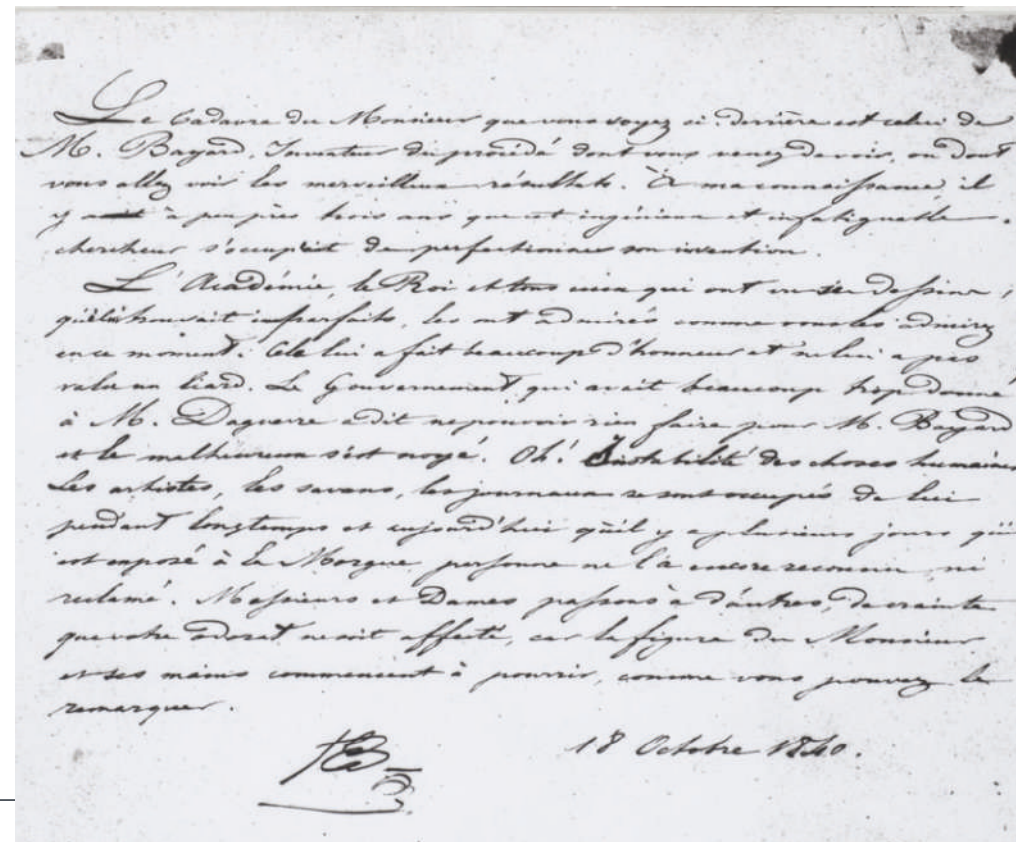 Le Cadavre du Monsieur que vous voyez ci-derrière est celui de
M. Bayard, Inventeur du procédé dont vous venez de voir, ou dont
vous allez voir les merveilleux résultats. À ma connaissance, il
y a à peu près trois ans que cet ingénieux et infatiguable
chercheur s'occupait de perfectionner son invention.
L'Académie, le Roi et tous ceux qui ont vu ses dessins,
qu'il trouvait imparfaits, les ont admirés comme vous les admirez
en ce moment. Cela lui a fait beaucoup d'honneur et ne lui a pas
valu un liard. Le Gouvernement, qui avait beaucoup trop donné
à M. Daguerre a dit ne pouvoir rien faire pour M. Bayard
et le malheureux s'est noyé. Oh! Instabilité des choses humaines
Les artistes, les savans, les journaux se sont occupés de lui
pendant longtemps et aujourd'hui qu'il y a plusieurs jours qu'il
est exposé à la Morgue, personne ne l'a encore reconnu, ni
réclamé. Messieurs et Dames, passons à d'autres, de crainte
que votre odorat ne soit affecté, car la figure du Monsieur
et ses mains commencent à pourrir, comme vous pouvez le
remarquer.
18 Octobre 1840.